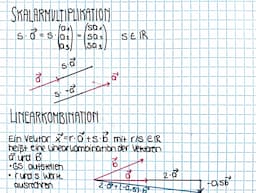 SKALARMULTIPLIKATION
s · a⃗ = s (a₁ a₂ a₃) = (sa₁ sa₂ sa₃) s ∈ ℝ
s · a⃗
a⃗
s · -a⃗
LINEARKOMBINATION
Ein Vektor x⃗ = r · a⃗ + s · b⃗ mit r/s ∈ ℝ
heißt eine Linearkombination der Vektoren
a⃗ und b⃗
• LGS aufstellen
• r und s
ausrechnen
b⃗
a⃗
2 · a⃗
-0,5b⃗
2 · a⃗ + (-0,5) · b⃗